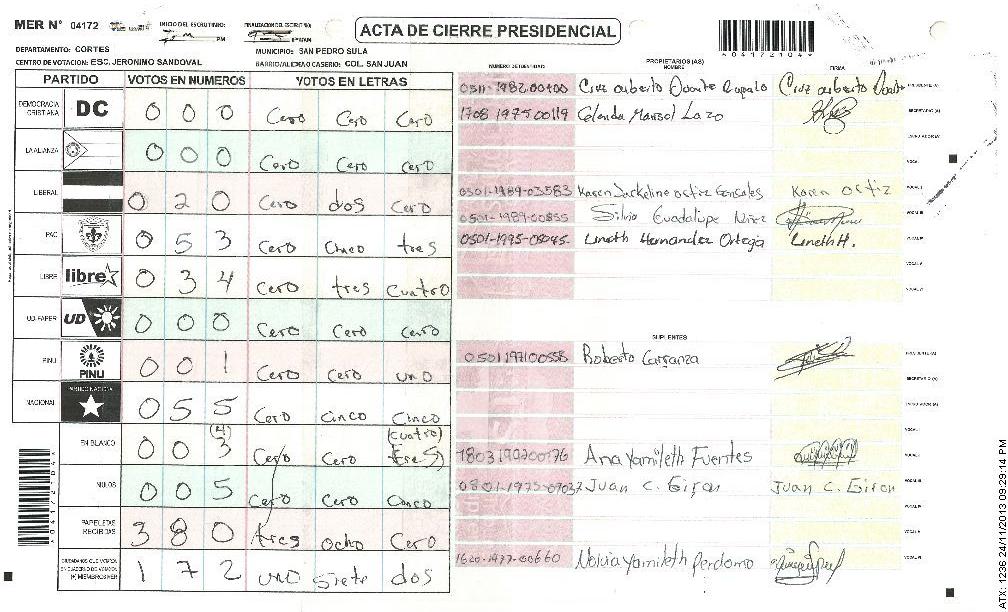 MER N° 04172
INICIO DEL ESCRUTINIO: PM
FINALIZACION DEL ESCRUTINIO:
ACTA DE CIERRE PRESIDENCIAL
04172104
DEPARTAMENTO: CORTES
MUNICIPIO: SAN PEDRO SULA
CENTRO DE VOTACION: ESC. JERONIMO SANDOVAL
BARRIO/ALDEA/O CASERIO: COL. SAN JUAN
PARTIDO VOTOS EN NUMEROS VOTOS EN LETRAS
DEMOCRACIA CRISTIANA DC 0 0 0 Cero Cero Cero
LA ALIANZA 0 0 0 Cero Cero Cero
LIBERAL 0 2 0 Cero dos Cero
PAC 0 5 3 Cero Cinco tres
LIBRE libre 0 3 4 Cero tres Cuatro
UD-FAPER UD 0 0 0 Cero Cero Cero
PINU PINU 0 0 1 Cero Cero uno
NACIONAL PARTIDO NACIONAL 0 5 5 Cero Cinco Cinco
EN BLANCO 0 0 3 (4) Cero Cero (cuatro) tres
NULOS 0 0 5 Cero Cero Cinco
PAPELETAS RECIBIDAS 3 8 0 tres ocho Cero
CIUDADANOS QUE VOTARON 1 7 2 uno siete dos
04172104
NUMERO DE IDENTIDAD PROPIETARIOS (AS) NOMBRE FIRMA
Cruz Alberto Duarte Cruz Alberto Duarte PRESIDENTE (A)
1708 1975 00119 Glenda Marisol Lazo SECRETARIO (A)
ESCRUTADOR (A)
VOCAL I
0501-1989-03583 Karen Jackeline Ortiz Gonzales Karen Ortiz VOCAL II
0501-1989-00855 Silvia Guadalupe VOCAL III
0501-1995-05045 Lineth Hernandez Ortega Lineth H. VOCAL IV
VOCAL V
VOCAL VI
SUPLENTES
0501197100558 Roberto Carranza PRESIDENTE (A)
SECRETARIO (A)
ESCRUTADOR (A)
VOCAL I
Ana Yamileth Fuentes VOCAL II
Juan C. Giron Juan C. Giron VOCAL III
VOCAL IV
VOCAL V
1620-1977-00660 Yamileth Perdomo VOCAL VI
ATX: 1236 24/11/2013 09:29:14 PM